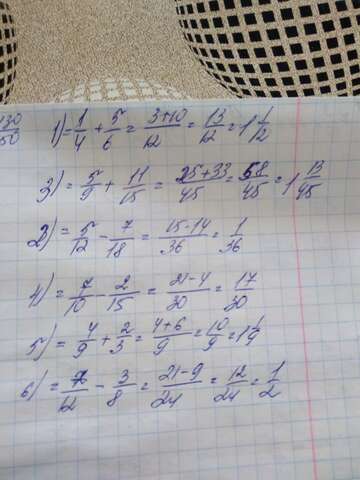 130
50
1) = 1/4 + 5/6 = 3+10/12 = 13/12 = 1 1/12
3) = 5/9 + 11/15 = 25+33/45 = 58/45 = 1 13/45
2) = 5/12 - 7/18 = 15-14/36 = 1/36
4) = 7/10 - 2/15 = 21-4/30 = 17/30
5) = 4/9 + 2/3 = 4+6/9 = 10/9 = 1 1/9
6) = 7/12 - 3/8 = 21-9/24 = 12/24 = 1/2